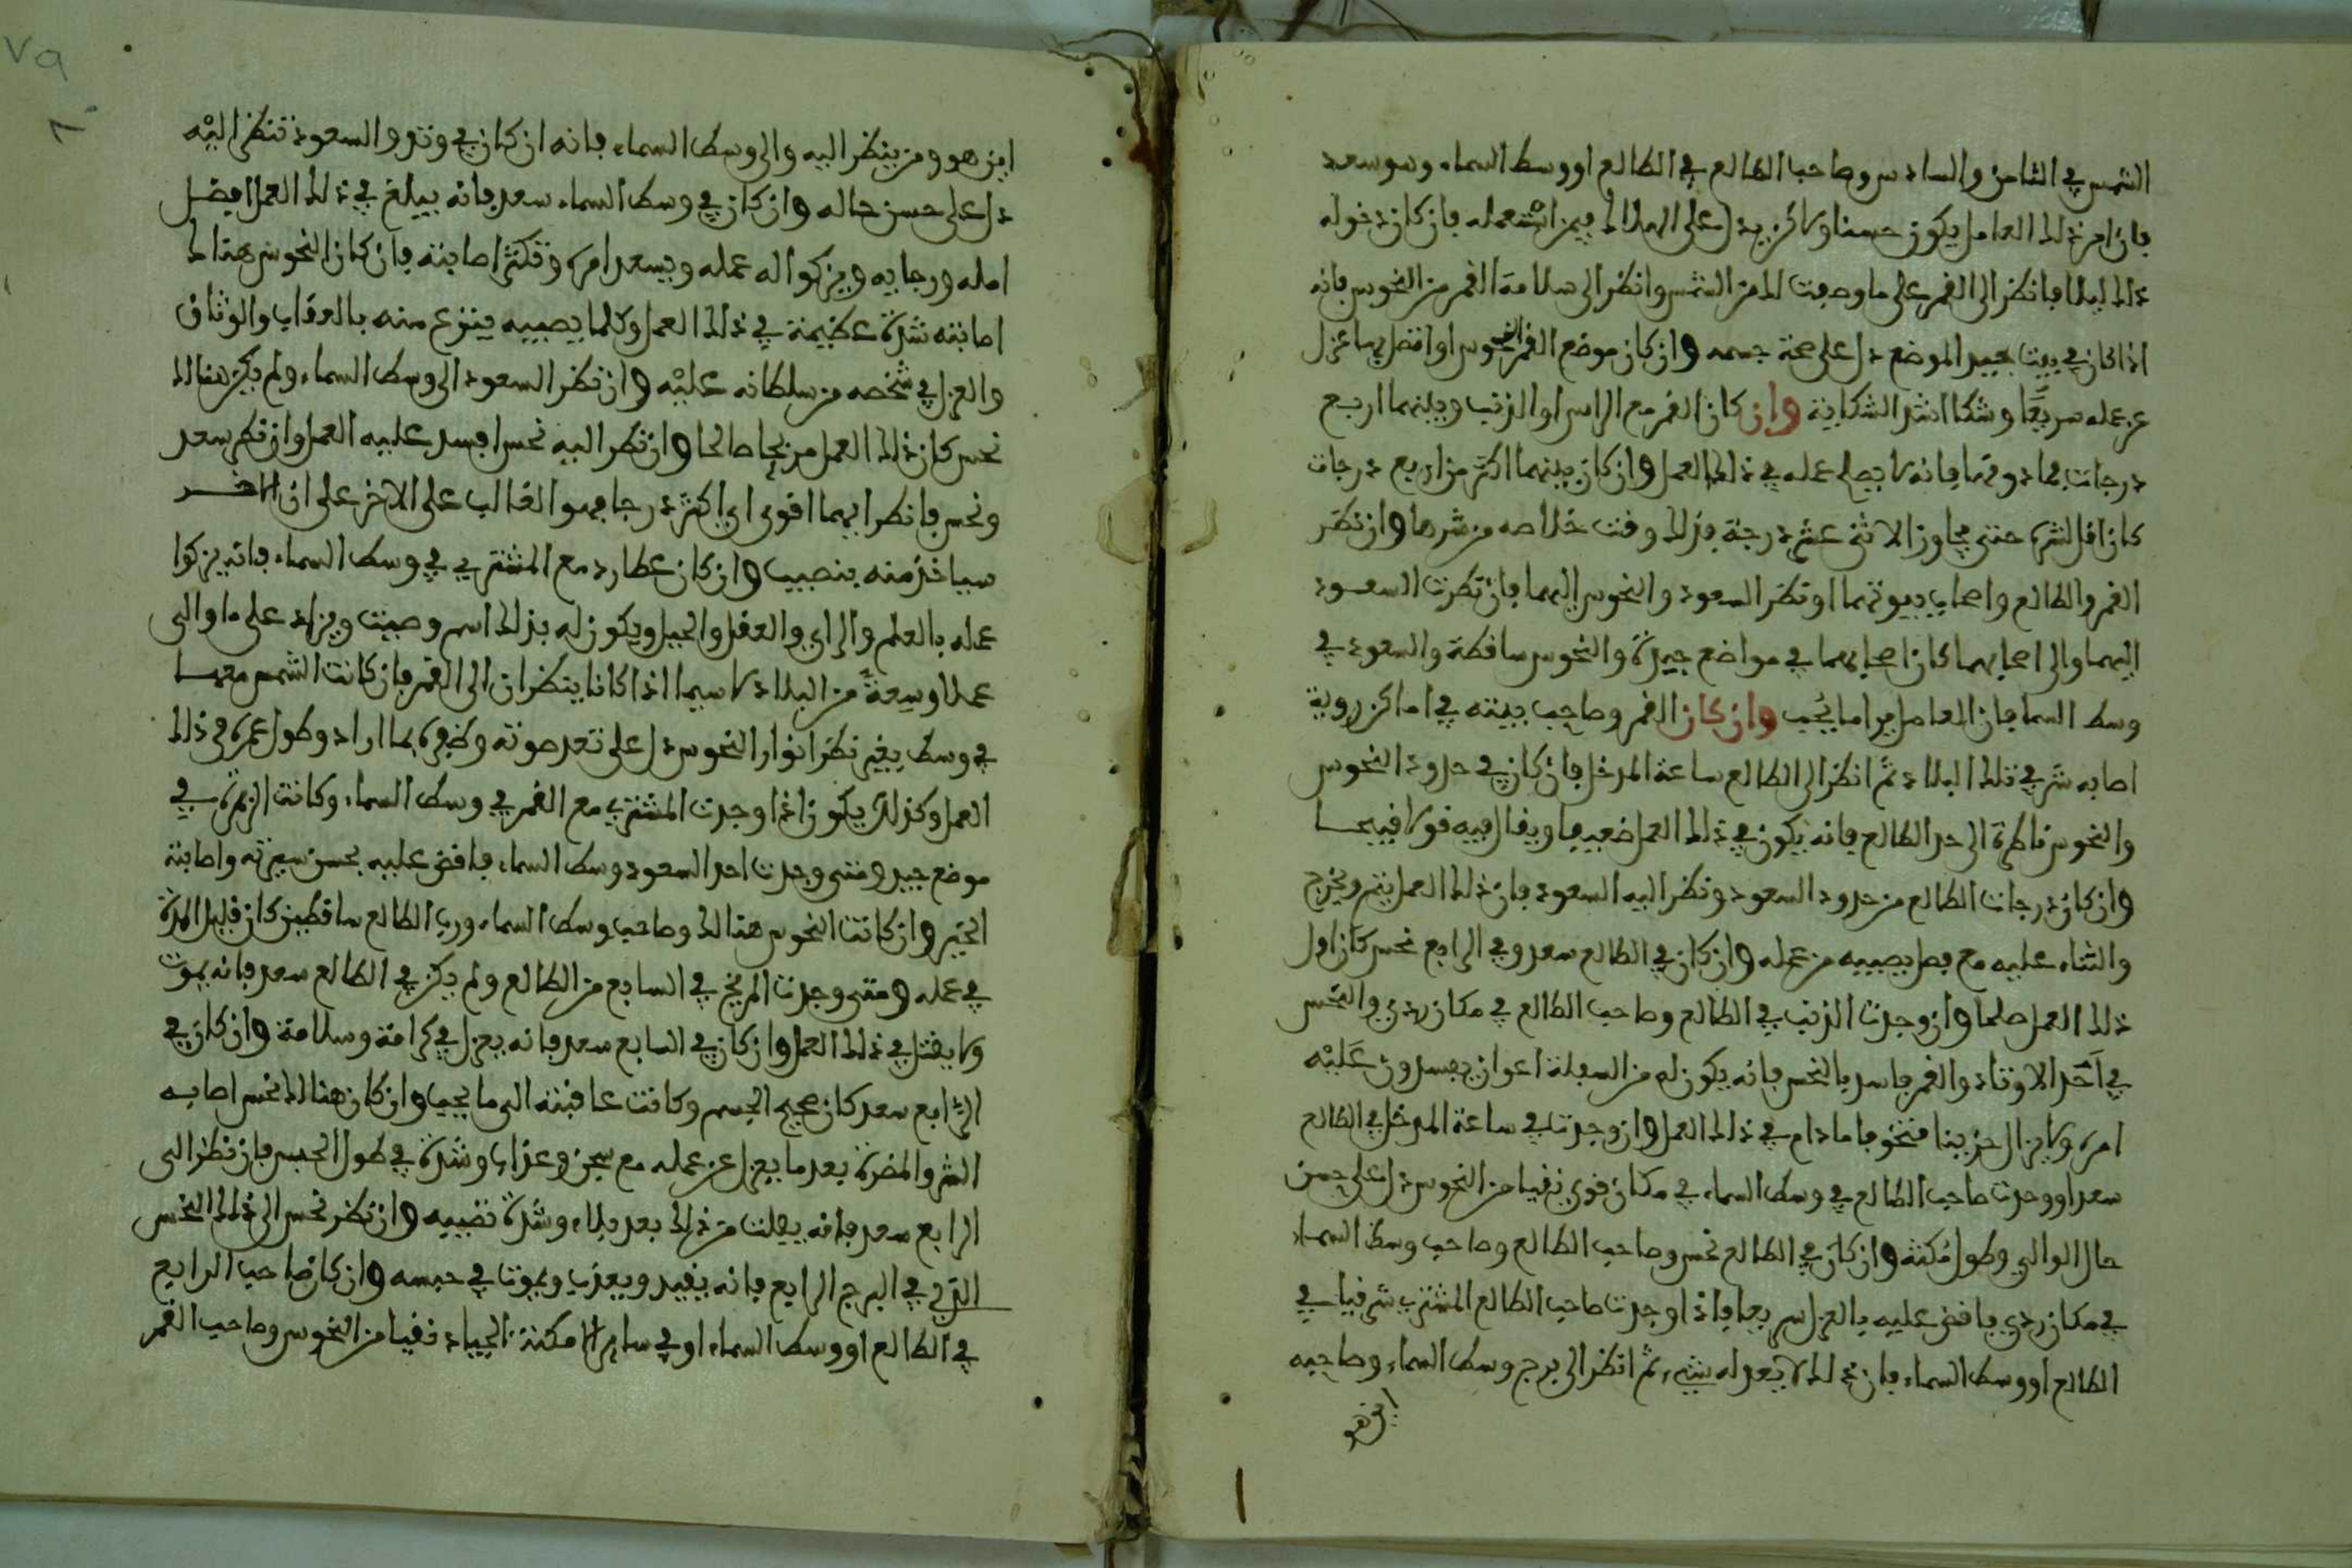 الشمس في الثامن والسادس وصاحب الطالع في الطالع او وسط السماء وهو سعد
فان امر ذلك العامل يكون حسنا ولاكن يدل على الهلاك فيمن استعمله فان كان دخوله
ذلك ليلا فانظر الى القمر على ما وصفت لك من الشمس وانظر الى سلامة القمر من النحوس فانه
اذا كان في بيت بعيد الموضع دل على صحة جسمه وان كان موضع القمر النحوس او اتصل بها عزل
عن عمله سريعا وشكا اشد الشكاية وان كان القمر مع الراس او الذنب وبينهما اربع
درجات فما دونها فانه لا يصلح عمله في ذلك العمل وان كان بينهما اكثر من اربع درجات
كان اقل لشره حتى يجاوز الاثنى عشر درجة فذلك وقت خلاصه من شرها وان نظر
القمر والطالع واصحاب بيوتهما او نظر السعود والنحوس اليهما فان نظرت السعود
اليهما والى اصحابهما كان اصحابهما في مواضع جيدة والنحوس ساقطة والسعود في
وسط السما فان العامل يرا ما يحب وان كان القمر وصاحب بيته في اماكن ردية
اصابه شر في تلك البلاد ثم انظر الى الطالع ساعة المدخل فان كان في حدود النحوس
والنحوس ناظرة الى حد الطالع فانه يكون في ذلك العمل ضعيفا ويقال فيه قولا قبيحا
وان كان درجات الطالع من حدود السعود ونظر اليه السعود فان ذلك العمل يتم ويخرج
والثناء عليه مع فضل يصيبه من عمله وان كان في الطالع سعد وفي الرابع نحس كان اول
ذلك العمل صلحا وان وجدت الذنب في الطالع وصاحب الطالع في مكان ردي والنحس
في احد الاوتاد والقمر فاسد بالنحس فانه يكون له من السفلة اعوان يفسدون عليه
امره ولا يزال حزينا متخوفا ما دام في ذلك العمل وان وجدت في ساعة المدخل في الطالع
سعدا ووجدت صاحب الطالع في وسط السماء في مكان قوي نقيا من النحوس دل على حسن
حال الوالي وطول مكثه وان كان في الطالع نحس وصاحب الطالع وصاحب وسط السماء
في مكان ردي فاقض عليه بالعزل سريعا فاذا وجدت صاحب الطالع المشتري شرقيا في
الطالع او وسط السماء فان ذلك لا يعدله شيء ثم انظر الى برج وسط السماء وصاحبه
اين هو
٧٩
٨٠
اين هو ومن ينظر اليه والى وسط السماء فانه ان كان في وتد والسعود تنظر اليه
دل على حسن حاله وان كان في وسط السماء سعد فانه يبلغ في ذلك العمل افضل
امله ورجايه ويزكوا له عمله ويسعد امره وتكثر اصابته فان كان النحوس هنالك
اصابته شدة عظيمة في ذلك العمل وكلما يصيبه ينزع منه بالعذاب والوثاق
والعزل في شخصه من سلطانه عليه وان نظر السعود الى وسط السماء ولم يكن هنالك
نحس كان ذلك العمل مريحا صالحا وان نظر اليه نحس افسد عليه العمل وان نظر سعد
ونحس فانظر ايهما اقوى اي اكثر درجا فهو الغالب على الاخر على ان الاخر
سياخذ منه بنصيب وان كان عطارد مع المشتري في وسط السماء فانه يزكوا
عمله بالعلم والراي والعقل والحيل ويكون له بذلك اسم وصيت ويزاد على ما والى
عملا وسعة من البلاد لا سيما اذا كانا ينظران الى القمر فان كانت الشمس معهما
في وسط بغير نظر انوار النحوس دل على تعد صوته وظفره بما اراد وطول عمره في ذلك
العمل وكذلك يكون اذا وجدت المشتري مع القمر في وسط السماء وكانت الزهرة في
موضع جيد ومتى وجدت احد السعود وسط السماء فاقض عليه بحسن سيرته واصابة
الخير وان كانت النحوس هنالك وصاحب وسط السماء ورب الطالع ساقطين كان قليل المدة
في عمله ومتى وجدت المريخ في السابع من الطالع ولم يكن في الطالع سعد فانه يموت
ولا يقتل في ذلك العمل وان كان في السابع سعد فانه يعزل في كرامة وسلامة وان كان في
الرابع سعد كان صحيح الجسم وكانت عاقبته الى ما يحب وان كان هنالك نحس اصابه
الشر والمضرة بعد ما يعزل عن عمله مع سجن وعذاب وشدة في طول الحبس فان نظر الى
الرابع سعد فانه يفلت من ذلك بعد بلاء وشدة تصيبه وان نظر نحس الى ذلك النحس
الذي في البرج الرابع فانه يقيد ويعذب ويموت في حبسه وان كان صاحب الرابع
في الطالع او وسط السماء او في ساير الامكنة الجياد نقيا من النحوس وصاحب القمر